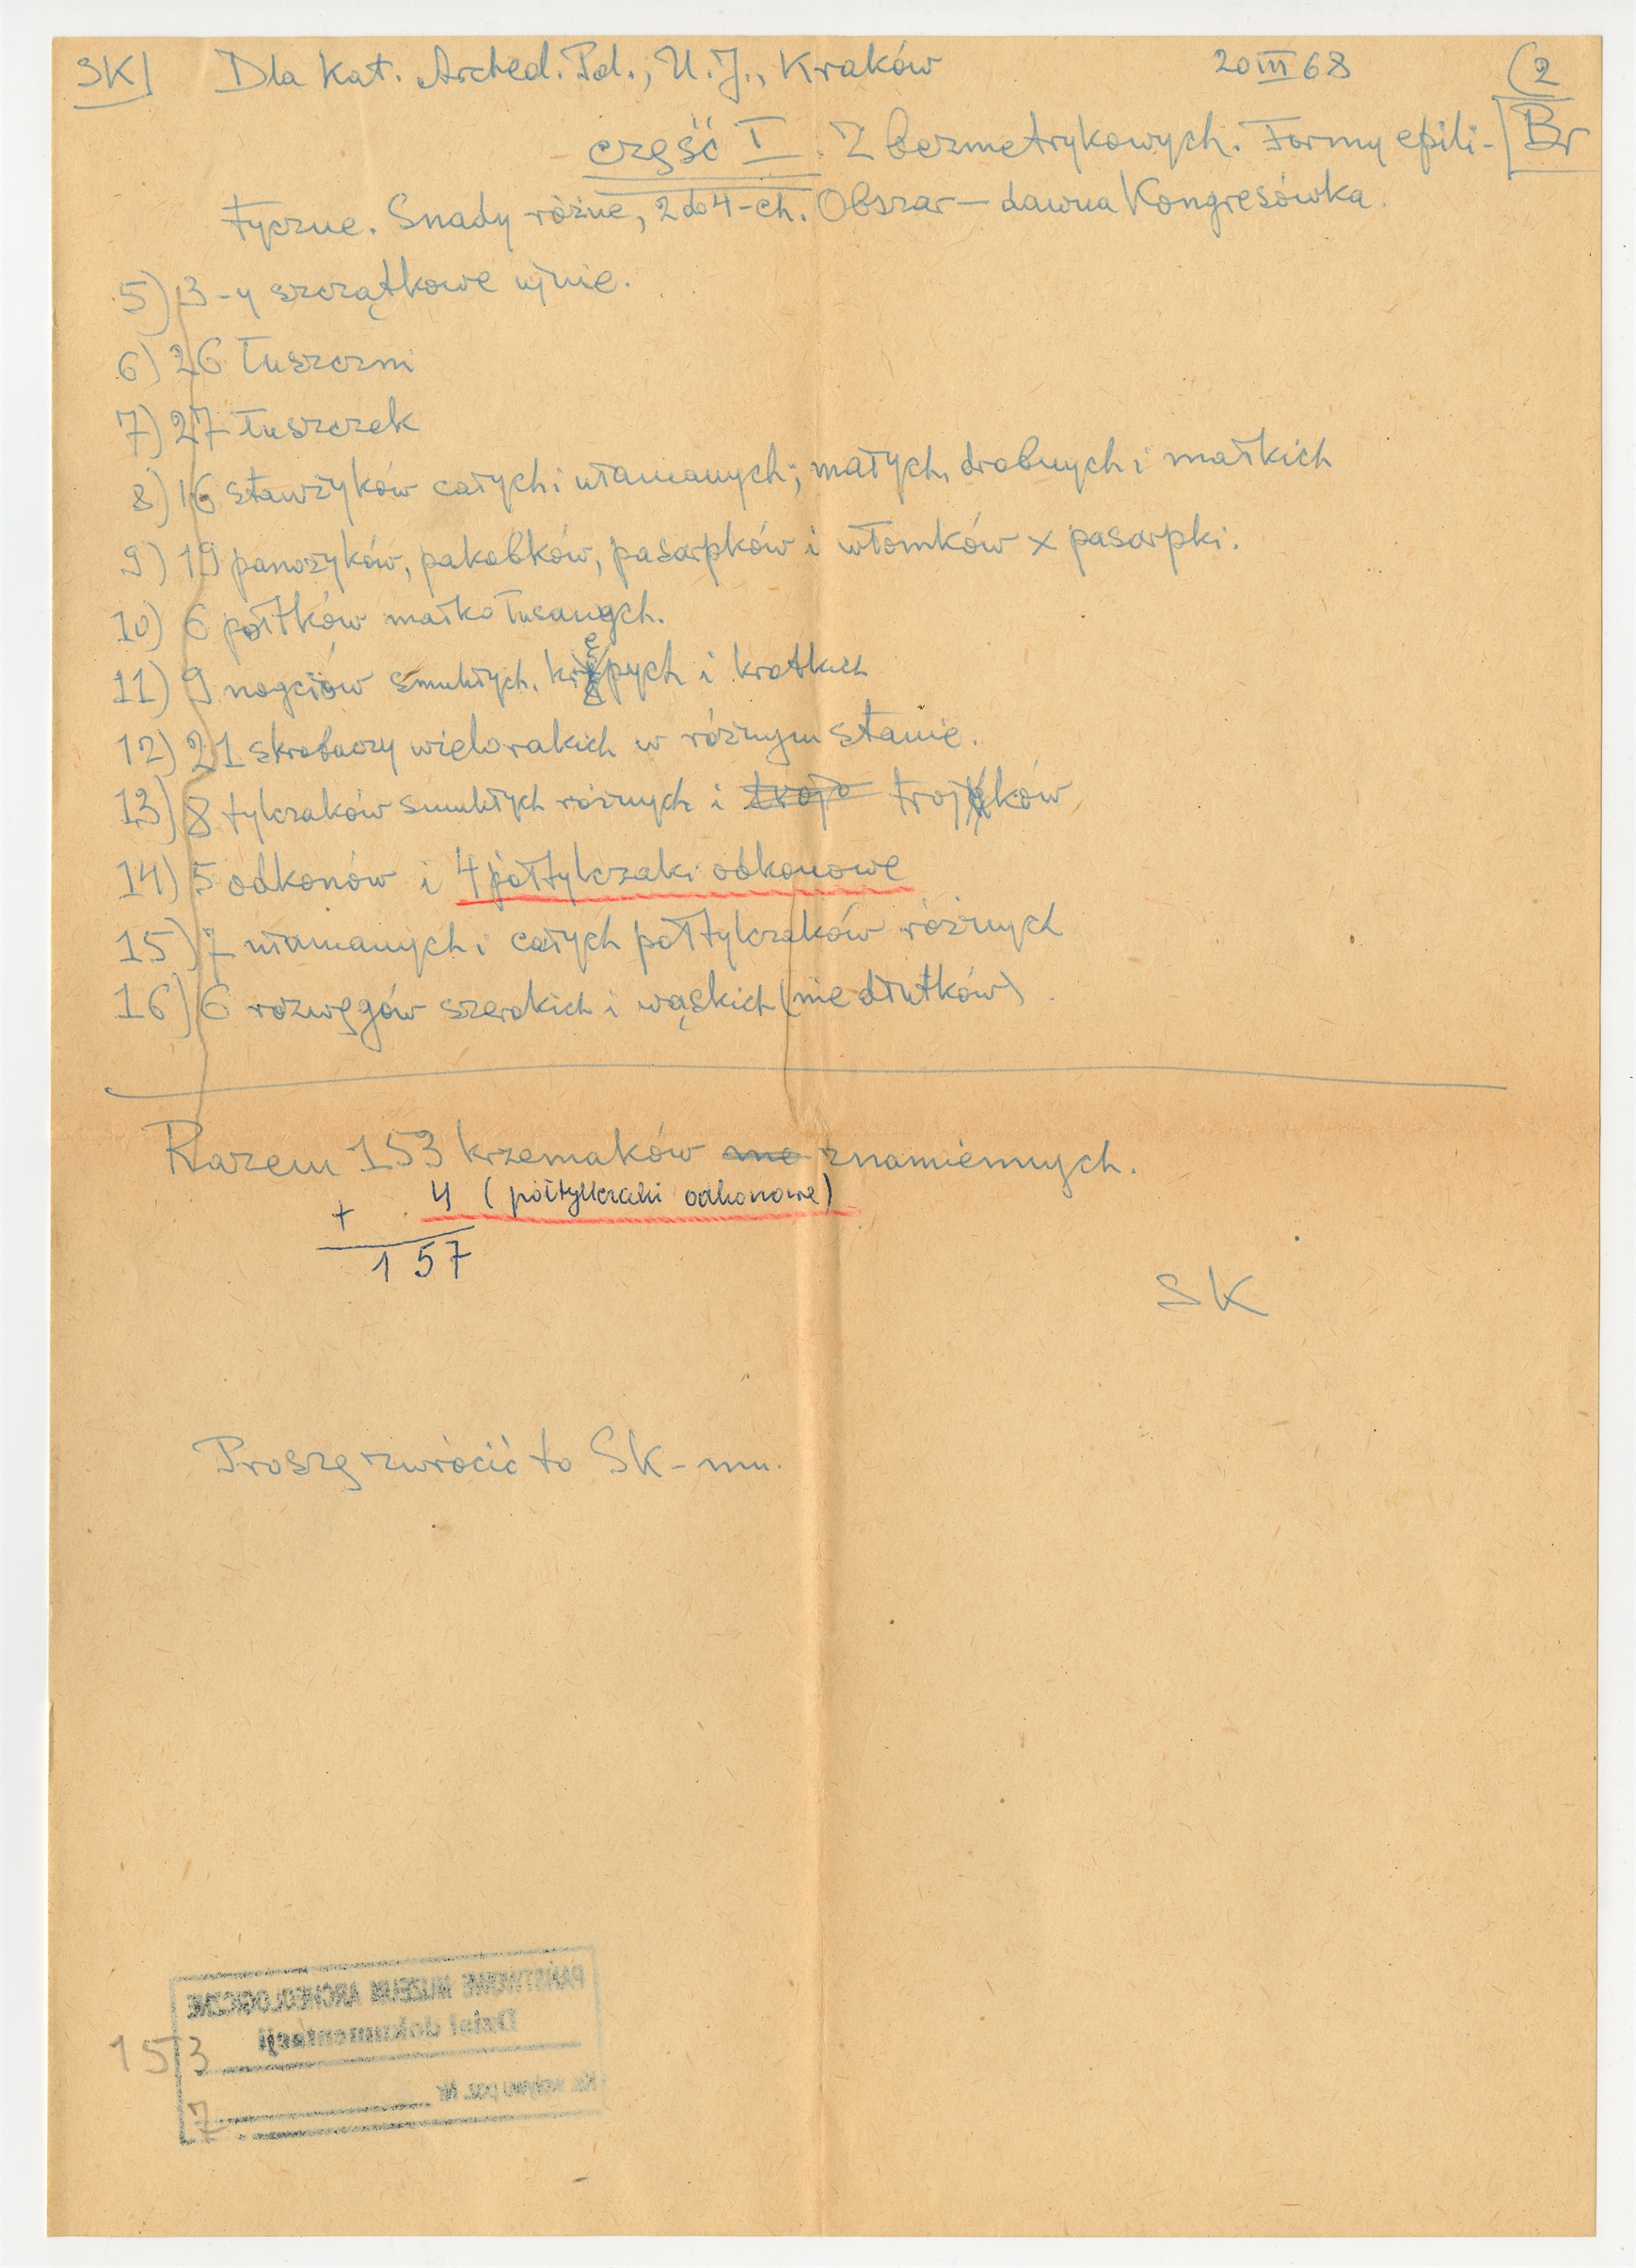 SK) Dla Kat. Archeol. Pol., U.J., Kraków 20 III 68 (2
część I. Z bezmetrykowych. Formy epili- [Br
tyczne. Snady różne, 2 do 4-ch. Obszar — dawna Kongresówka.
5) 3-y szczątkowe ujnie.
6) 26 łuszczni
7) 27 łuszczek
8) 16 stawżyków całych i ułamanych; małych, drobnych i małkich
9) 19 panożyków, pakobków, pasarpków i włomków x pasarpki.
10) 6 połtków małko łusanych.
11) 9 nogciów smukłych, krępych i krotkich
12) 21 skrobaczy wielorakich w różnym stanie.
13) 8 tylczaków smukłych różnych i trojo trojków
14) 5 odkonów i 4 półtylczaki odkonowe
15) 7 ułamanych i całych półtylczaków różnych
16) 6 rozwęgów szerokich i wąskich (nie dłutków).
Razem 153 krzemaków znamiennych.
+ 4 (półtylczaki odkonowe)
157
SK
Proszę zwrócić to SK-mu.
PAŃSTWOWE MUZEUM ARCHEOLOGICZNE
Dział dokumentacji
153
Ks. wpływu poz. Nr
7